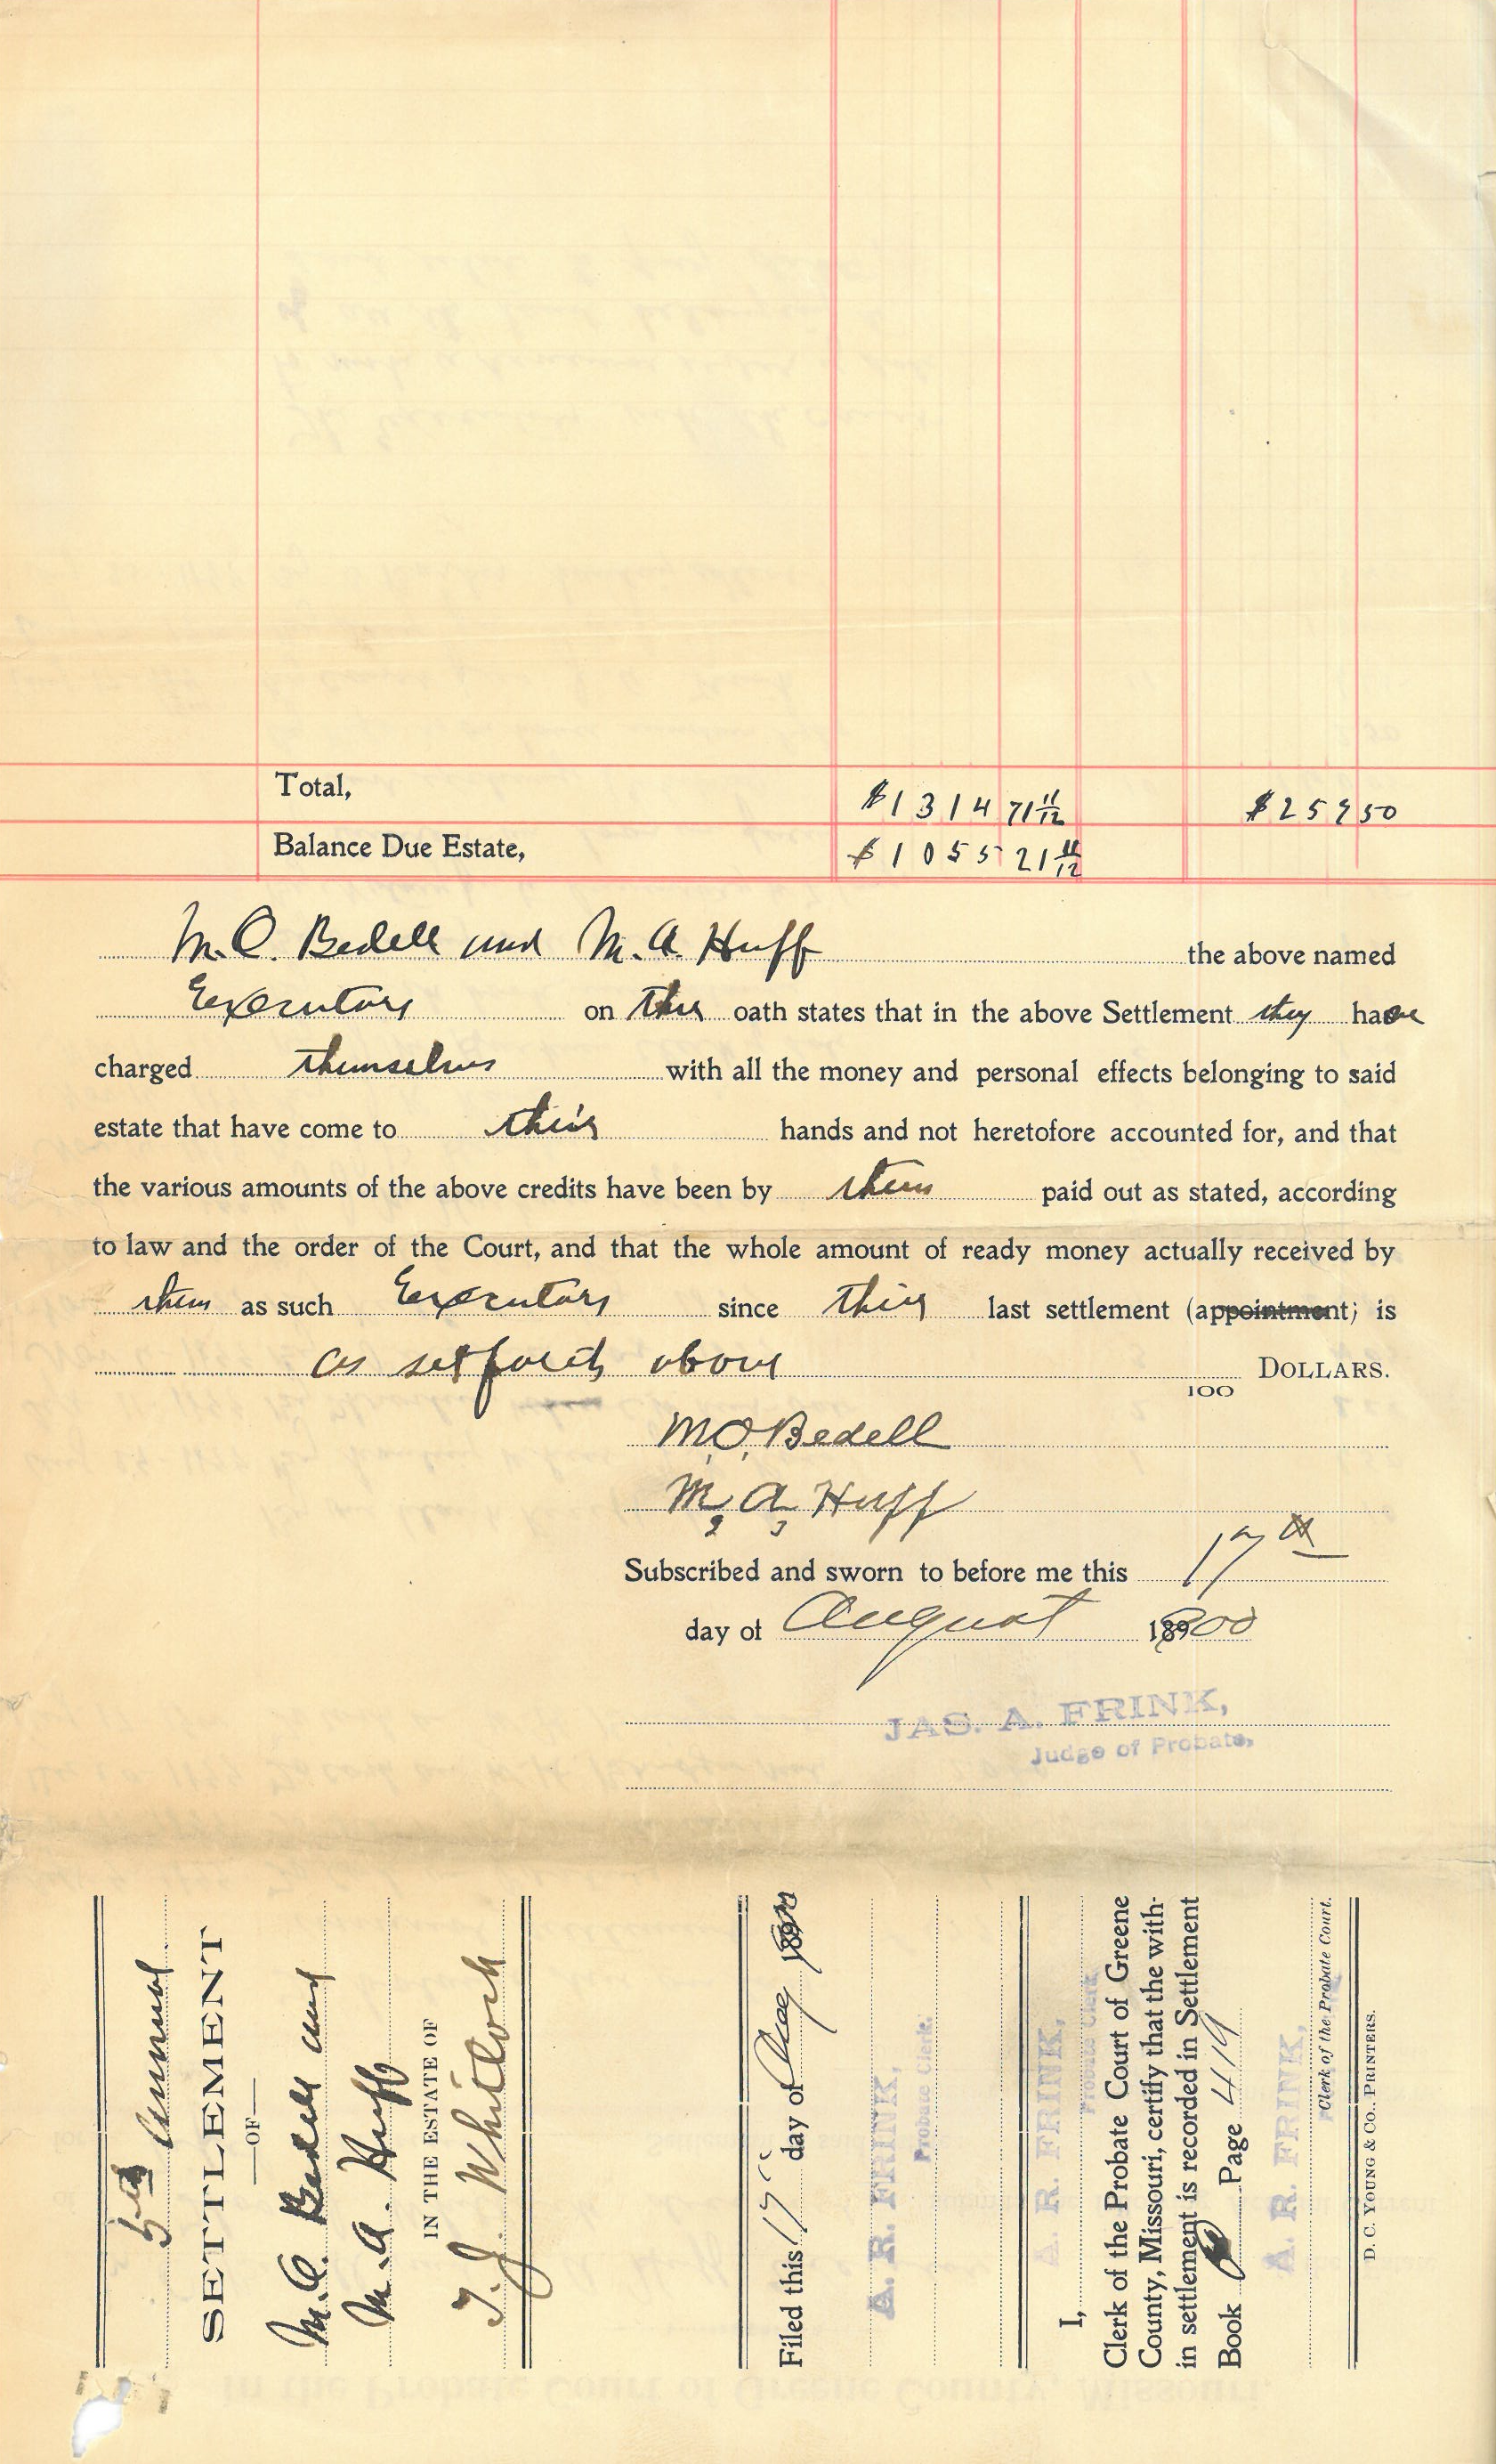 Total, $1314 71 11/12 $259 50
Balance Due Estate, $1055 21 11/12
M.O. Bedell and M. A. Huff the above named
Executors on their oath states that in the above Settlement they have
charged themselves with all the money and personal effects belonging to said
estate that have come to their hands and not heretofore accounted for, and that
the various amounts of the above credits have been by them paid out as stated, according
to law and the order of the Court, and that the whole amount of ready money actually received by
them as such Executors since their last settlement (appointment) is
as set forth above 100 DOLLARS.
M.O. Bedell
M, A, Huff
Subscribed and sworn to before me this 17th
day of August 1900
JAS. A. FRINK,
Judge of Probate,
5th Annual
SETTLEMENT
—OF—
M.O. Bedell and
M.A. Huff
IN THE ESTATE OF
T. J. Whitlock
Filed this 17 day of Aug
A. R. FRINK,
Probate Clerk.
I, A. R. FRINK,
Probate Clerk
Clerk of the Probate Court of Greene
County, Missouri, certify that the with-
in settlement is recorded in Settlement
Book Page 419
A. R. FRINK,
Clerk of the Probate Court.
D. C. YOUNG & CO., PRINTERS.